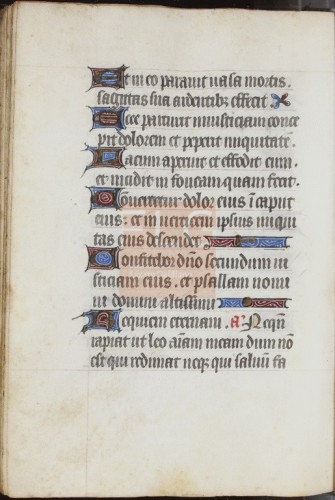 Et in eo parauit uasa mortis.
sagittas suas ardentibꝫ effecit
Ecce parturit iniusticiam conce
pit dolorem et peperit iniquitatē.
Lacum aperuit et effodit eum.
et incidit in foueam quam fecit.
Conuertetur dolor eius ī caput
eius: et in uerticem ipsius iniqui
tas eius descendet
Confitebor dño secundum iu
sticiam eius. et psallam nomi
ni domini altissimi
Requiem eternam. A. Neqn̄
rapiat ut leo aīam meam dum nō
est qui redimat neqꝫ qui saluū fa